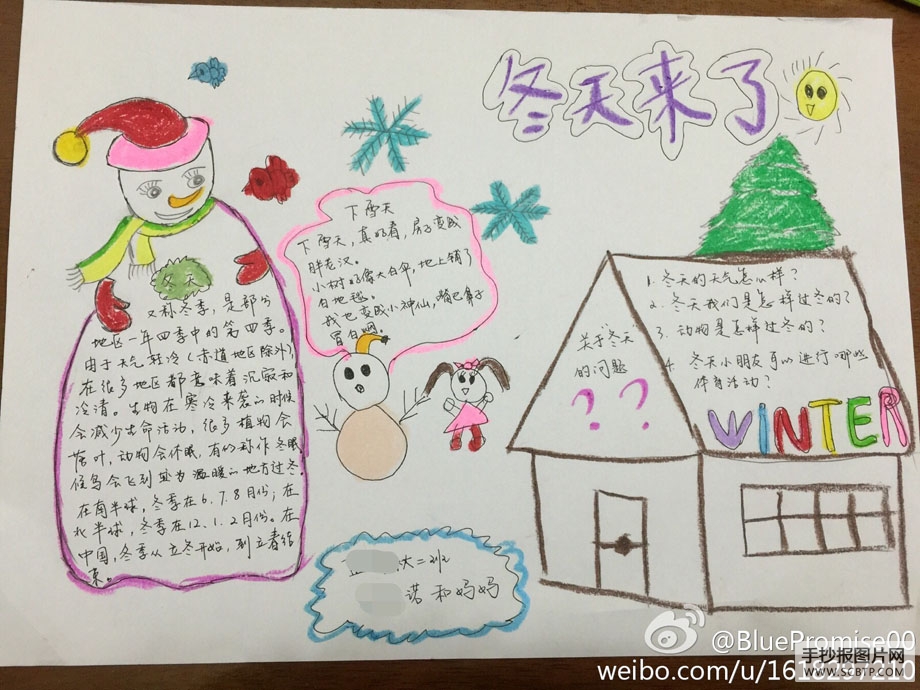 冬天来了
冬天
又称冬季，是部份
地区一年四季中的第四季。
由于天气较冷（赤道地区除外）
在很多地区都意味着沉寂和
冷清。生物在寒冷来袭的时候
会减少生命活动，很多植物会
落叶，动物会休眠，有的称作冬眠
候鸟会飞到较为温暖的地方过冬。
在南半球，冬季在6.7.8月份；在
北半球，冬季在12.1.2月份。在
中国，冬季从立冬开始，到立春结
束。
下雪天
下雪天，真好看，房子变成
胖老汉。
小树好像大白伞，地上铺了
白地毯。
我也变成小神仙，嘴巴鼻子
冒白烟。
关于“冬天”
的问题
??
1. 冬天的天气怎么样？
2. 冬天我们是怎样过冬的？
3. 动物是怎样过冬的？
4. 冬天小朋友可以进行哪些
体育活动？
WINTER
大二班
诺和妈妈
@BluePromise00
weibo.com/u/161
210
手抄报图片网
WWW.SCBTP.COM